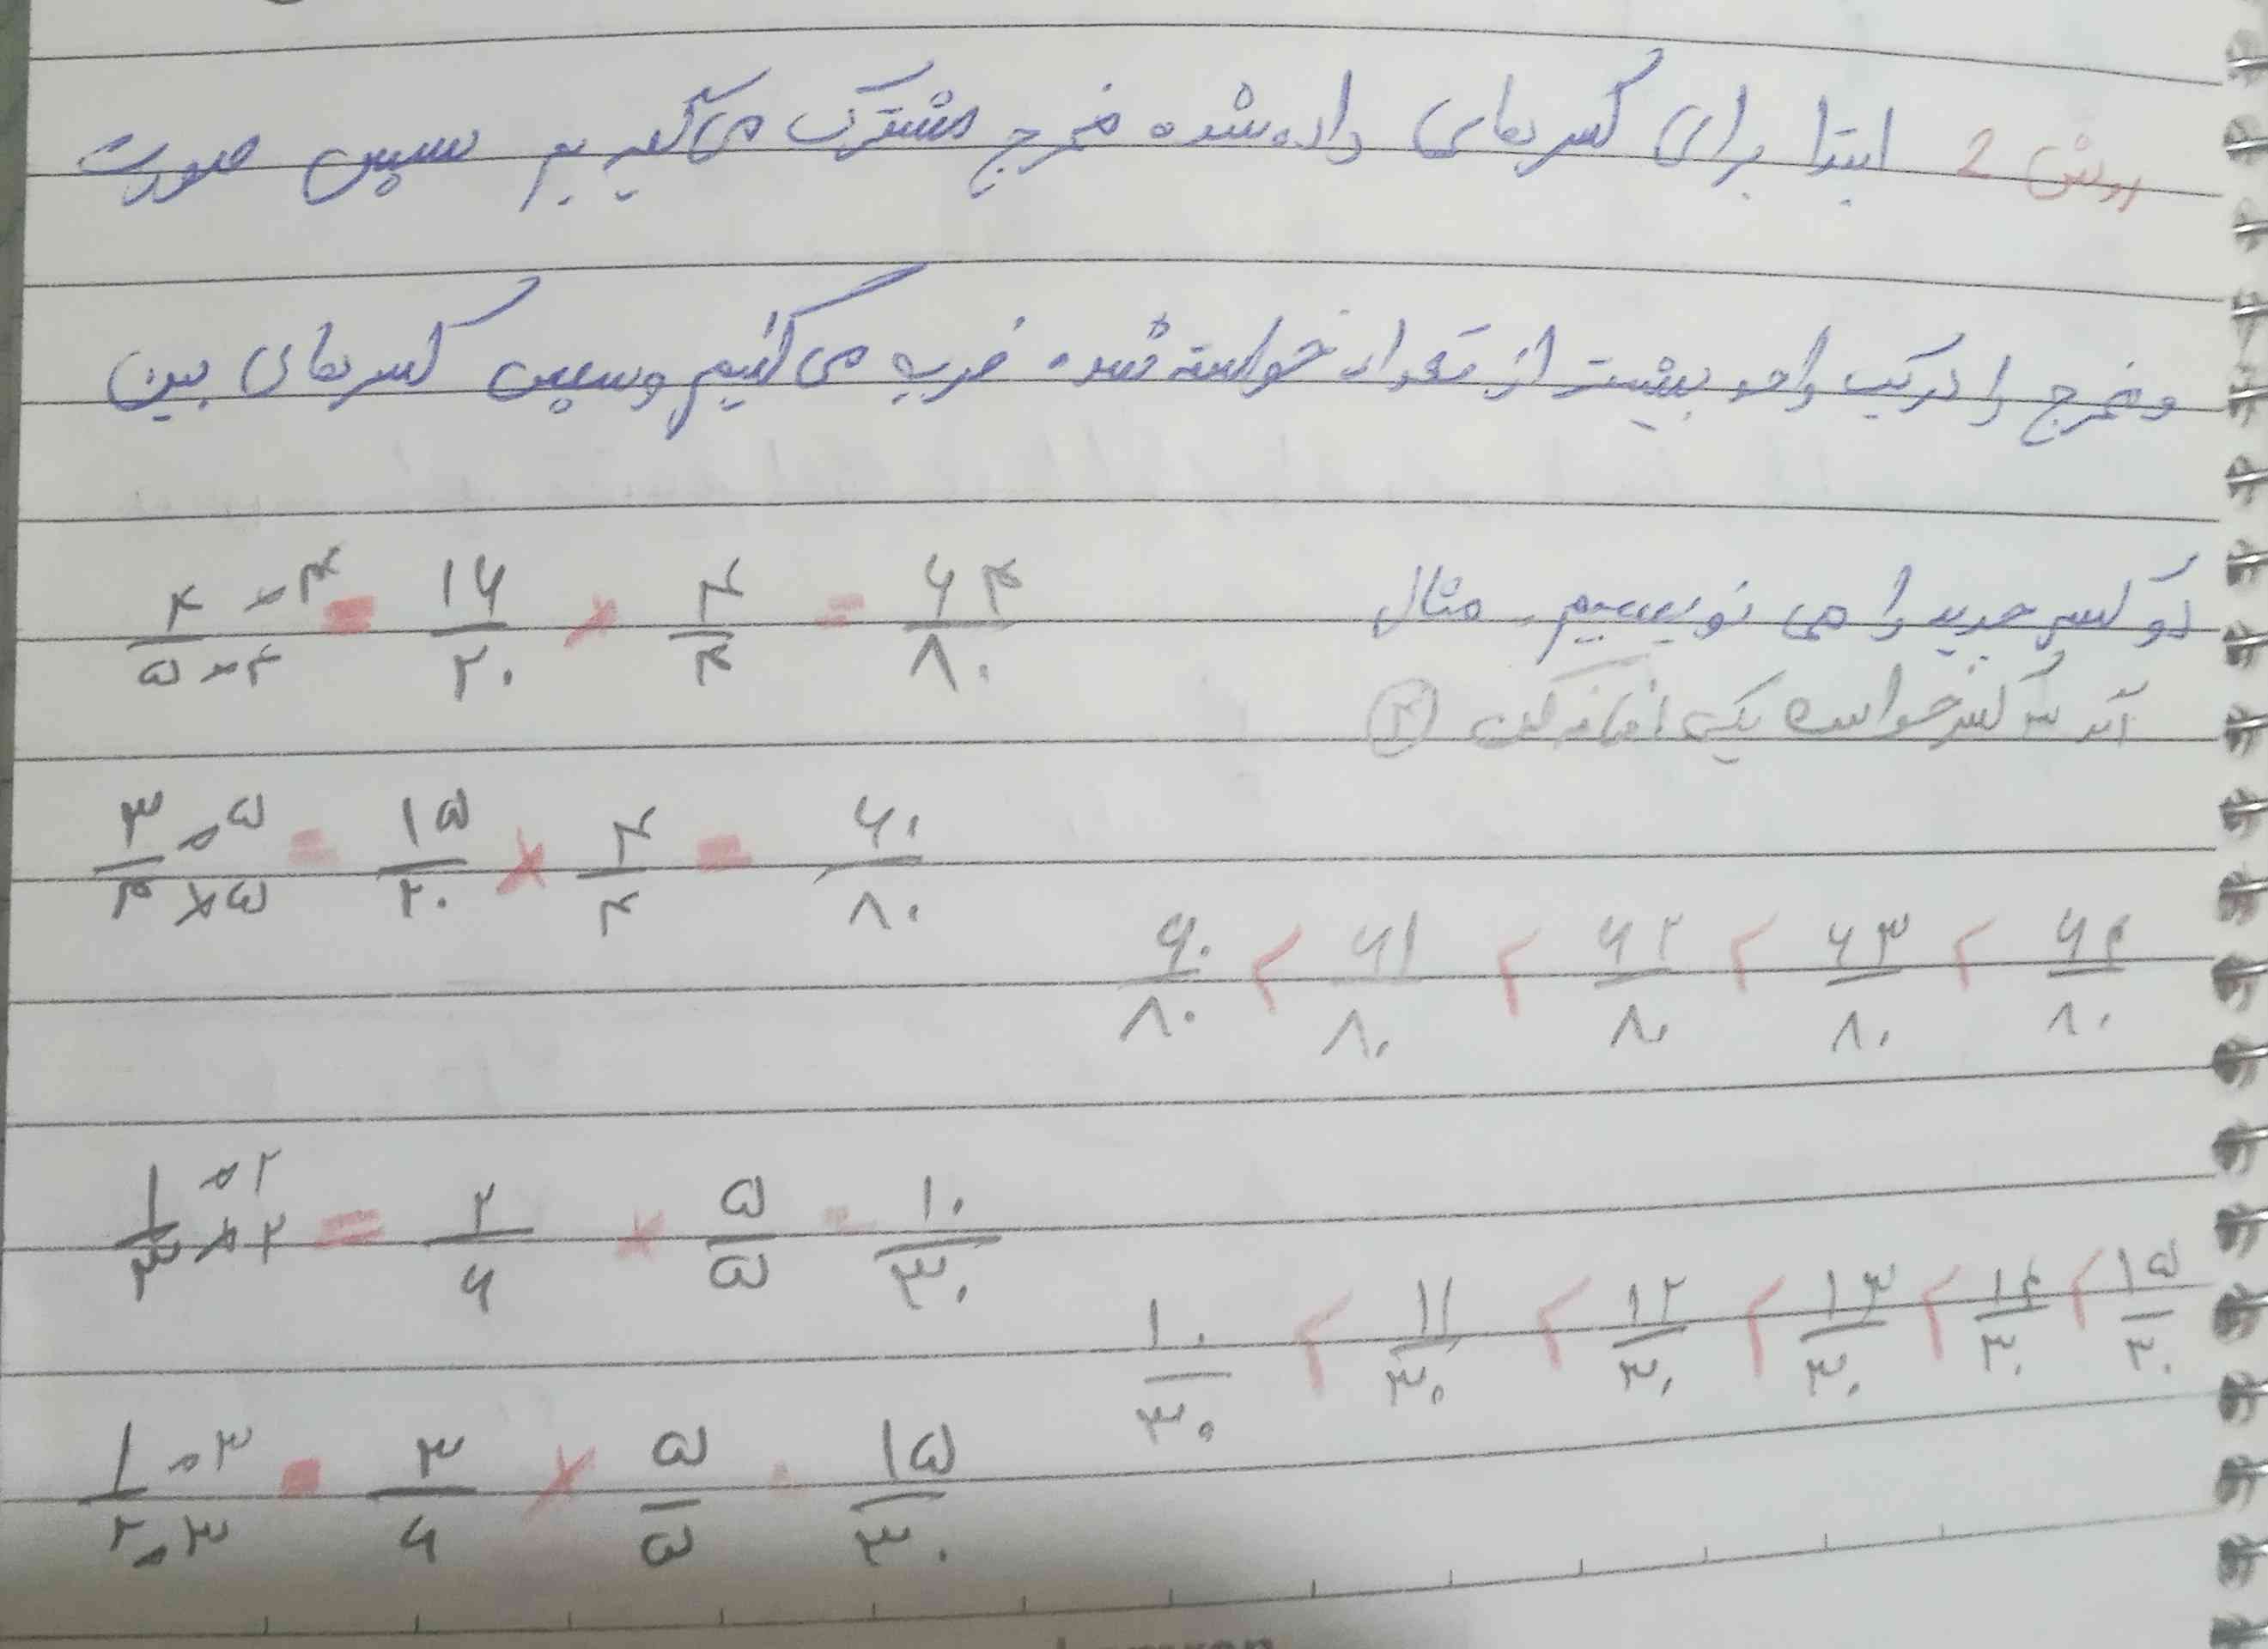 روش 2 ابتدا برای کسرهای داده شده مخرج مشترک می‌گیریم سپس صورت
و مخرج را در یک واحد بیشتر از تعداد خواسته شده ضرب می‌کنیم و سپس کسرهای بین
دو کسر جدید را می نویسیم. مثال
اگر ۳ کسر خواست یکی اضافه کن ۴
۴×۴/۵×۴ = ۱۶/۲۰ × ۴/۴ = ۶۴/۸۰
۳×۵/۴×۵ = ۱۵/۲۰ × ۴/۴ = ۶۰/۸۰
۶۰/۸۰ < ۶۱/۸۰ < ۶۲/۸۰ < ۶۳/۸۰ < ۶۴/۸۰
۱×۲/۳×۲ = ۲/۶ × ۵/۵ = ۱۰/۳۰
۱۰/۳۰ < ۱۱/۳۰ < ۱۲/۳۰ < ۱۳/۳۰ < ۱۴/۳۰ < ۱۵/۳۰
۱×۳/۲×۳ = ۳/۶ × ۵/۵ = ۱۵/۳۰